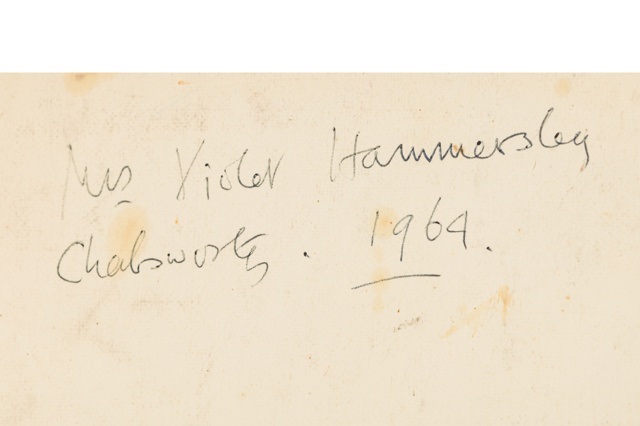 Mrs Violet Hammersley
Chatsworth. 1964.